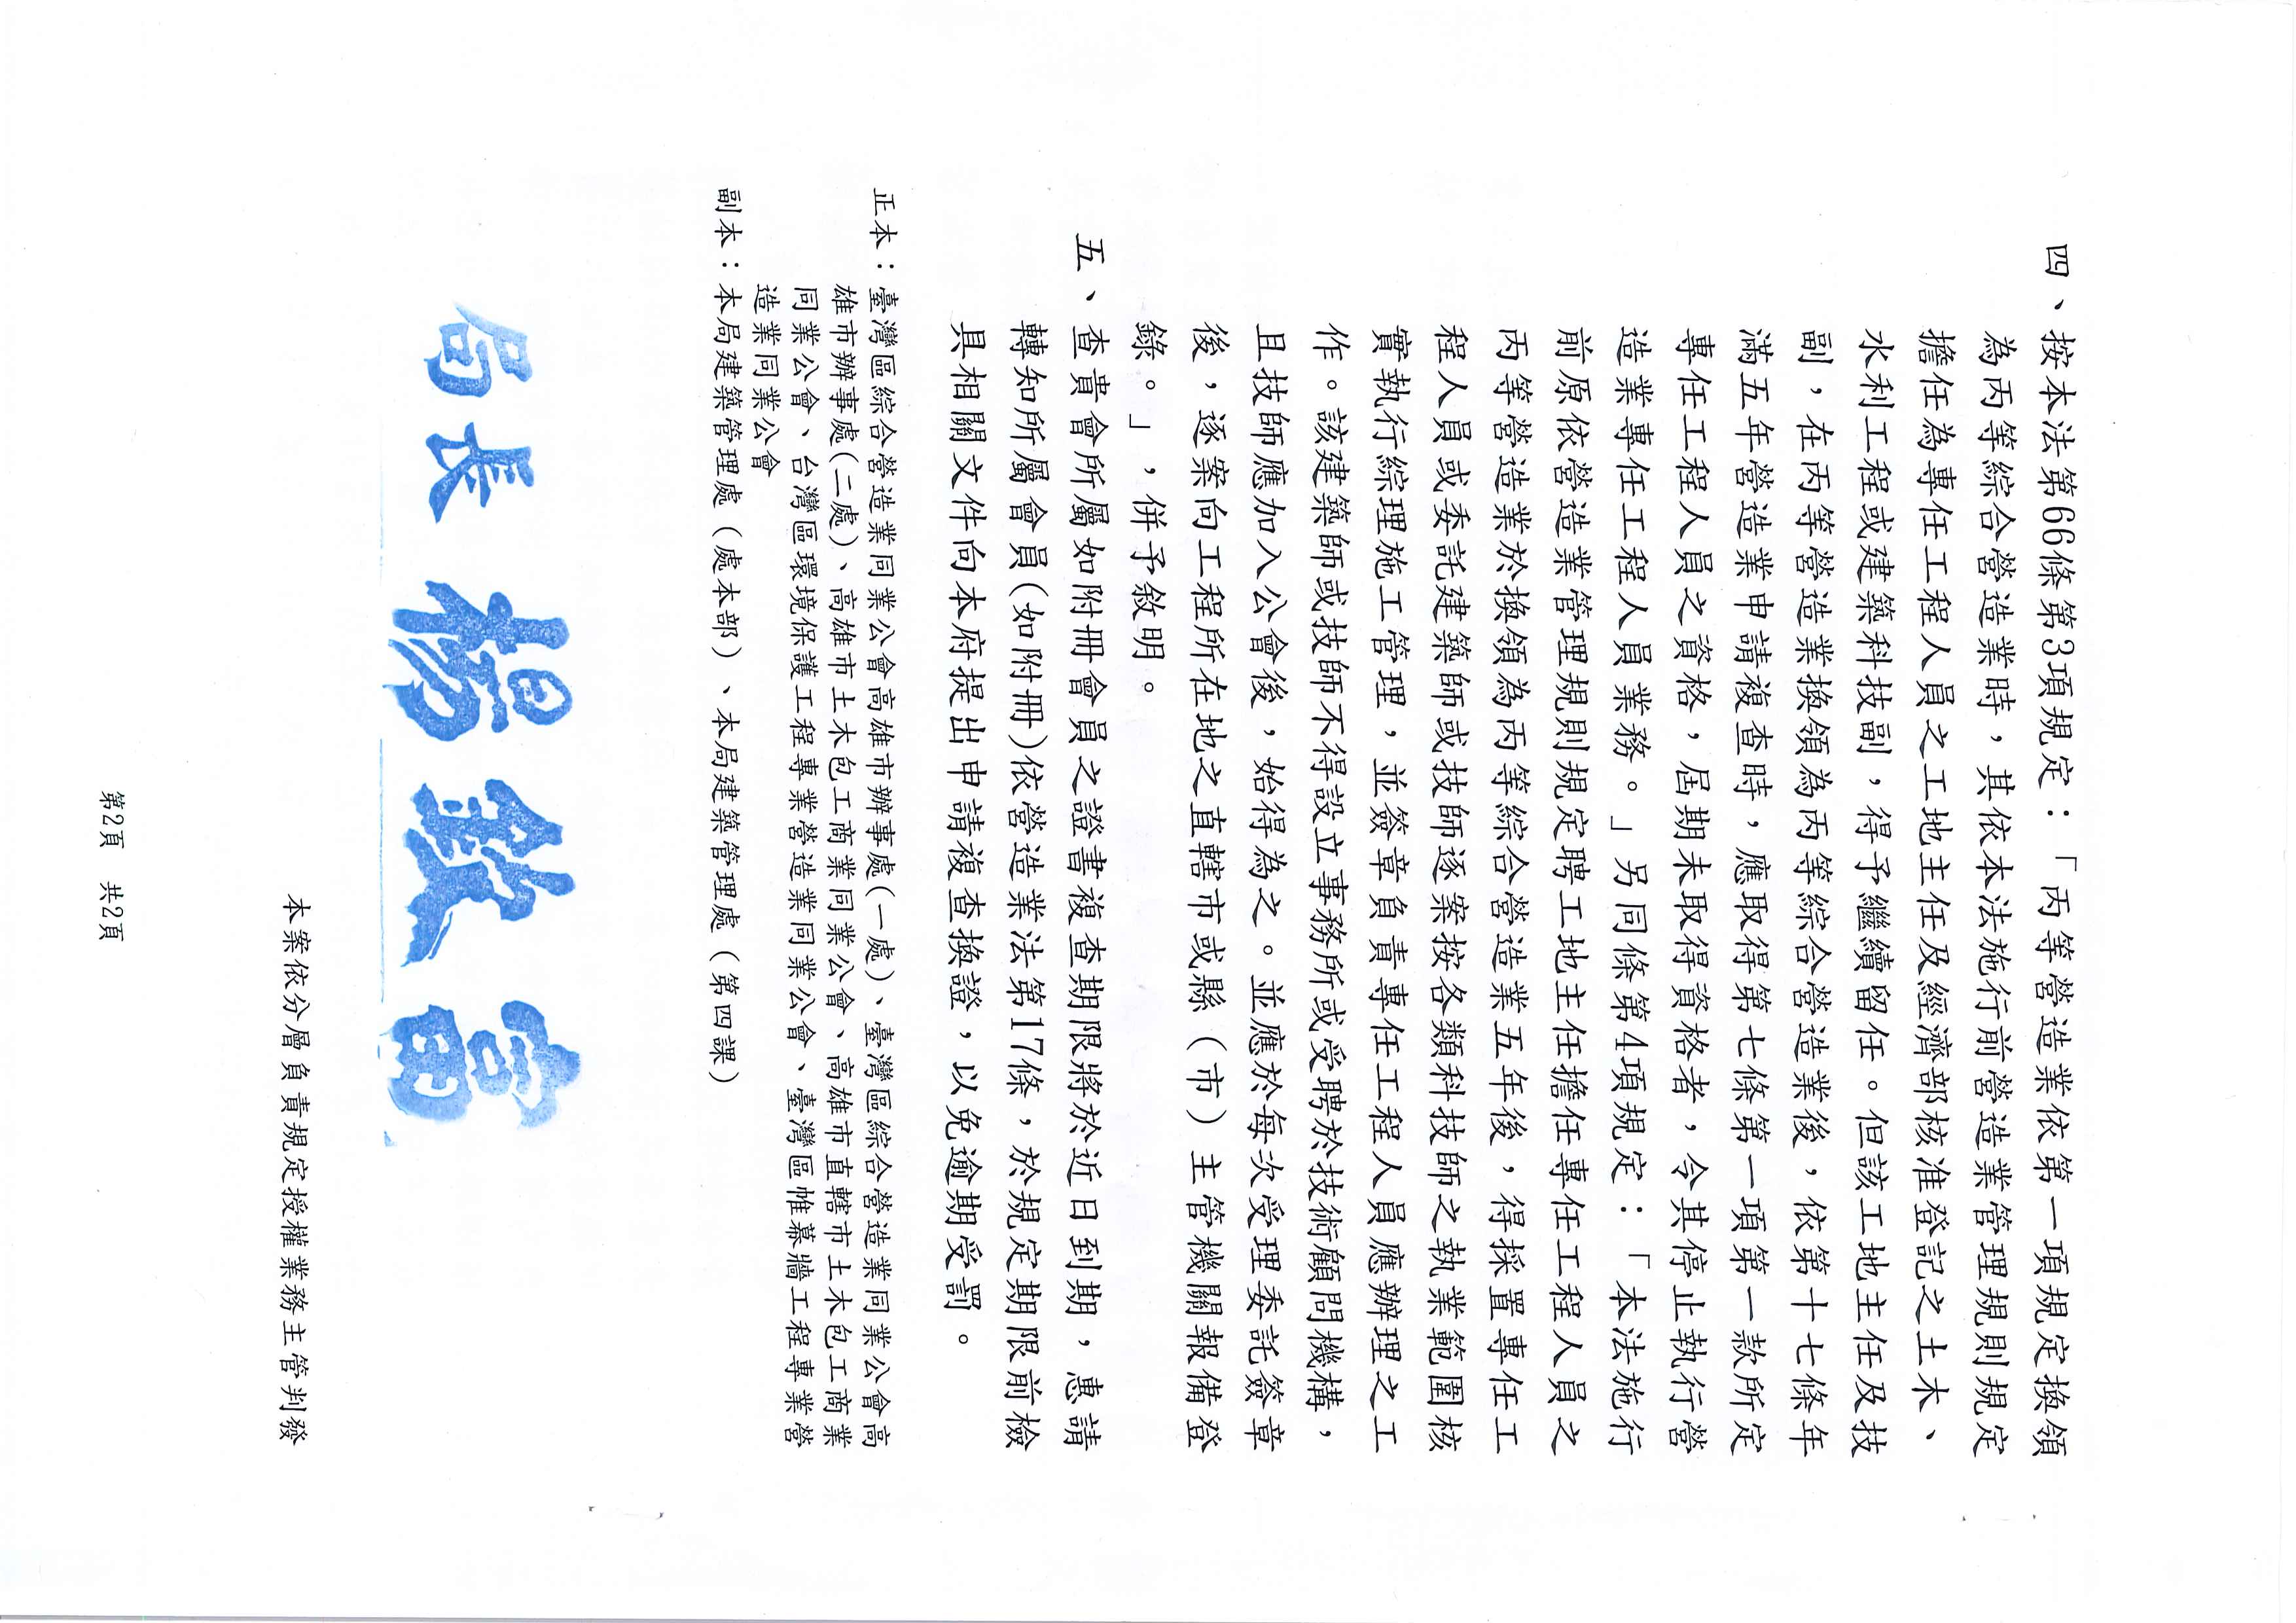 四、按本法第66條第3項規定：「丙等營造業依第一項規定換領
為丙等綜合營造業時，其依本法施行前營造業管理規則規定
擔任為專任工程人員之工地主任及經濟部核准登記之土木、
水利工程或建築科技副，得予繼續留任。但該工地主任及技
副，在丙等營造業換領為丙等綜合營造業後，依第十七條年
滿五年營造業申請複查時，應取得第七條第一項第一款所定
專任工程人員之資格，屆期未取得資格者，令其停止執行營
造業專任工程人員業務。」另同條第4項規定：「本法施行
前原依營造業管理規則規定聘工地主任擔任專任工程人員之
丙等營造業於換領為丙等綜合營造業五年後，得採置專任工
程人員或委託建築師或技師逐案按各類科技師之執業範圍核
實執行綜理施工管理，並簽章負責專任工程人員應辦理之工
作。該建築師或技師不得設立事務所或受聘於技術顧問機構，
且技師應加入公會後，始得為之。並應於每次受理委託簽章
後，逐案向工程所在地之直轄市或縣（市）主管機關報備登
錄。」，併予敘明。
五、查貴會所屬如附冊會員之證書複查期限將於近日到期，惠請
轉知所屬會員(如附冊)依營造業法第17條，於規定期限前檢
具相關文件向本府提出申請複查換證，以免逾期受罰。
正本：臺灣區綜合營造業同業公會高雄市辦事處(一處)、臺灣區綜合營造業同業公會高
雄市辦事處(二處)、高雄市土木包工商業同業公會、高雄市直轄市土木包工商業
同業公會、台灣區環境保護工程專業營造業同業公會、臺灣區帷幕牆工程專業營
造業同業公會
副本：本局建築管理處（處本部）、本局建築管理處（第四課）
局長 楊欽富
本案依分層負責規定授權業務主管判發
第2頁 共2頁